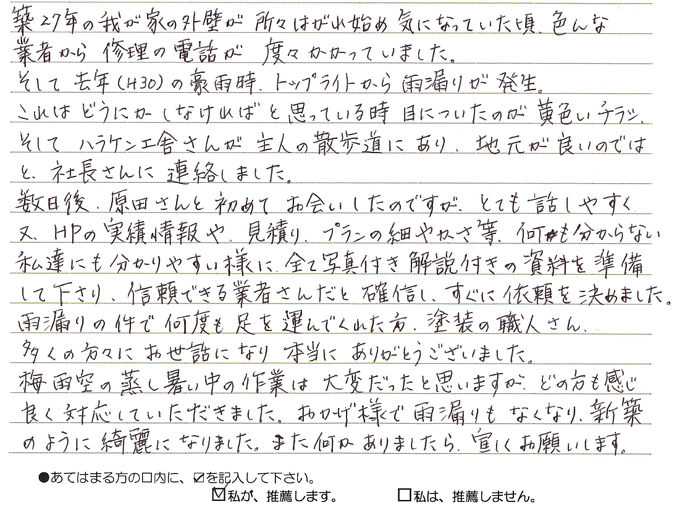 築27年の我が家の外壁が 所々はがれ始め 気になっていた頃、色んな
業者から 修理の電話が 度々かかっていました。
そして 去年(H30)の豪雨時、トップライトから 雨漏りが 発生。
これは どうにかしなければ と思っている時 目についたのが 黄色いチラシ。
そして ハラケン工舎さんが 主人の散歩道にあり、地元が良いのでは
と、社長さんに 連絡しました。
数日後、原田さんと 初めて お会いしたのですが、とても 話しやすく
又、HPの実績情報や、見積り、プランの細やかさ等、何も分からない
私達にも分かりやすい様に、全て写真付き解説付きの 資料を準備
して下さり、信頼できる業者さんだと 確信し、すぐに依頼を決めました。
雨漏りの件で 何度も足を運んでくれた方、塗装の職人さん、
多くの方々に お世話になり 本当に ありがとうございました。
梅雨空の蒸し暑い中の作業は 大変だったと思いますが、どの方も感じ
良く対応していただきました。おかげ様で 雨漏りも なくなり、新築
のように 綺麗になりました。また何かありましたら、宜しくお願いします。
●あてはまる方の口内に、☑を記入して下さい。
☑私が、推薦します。 □私は、推薦しません。